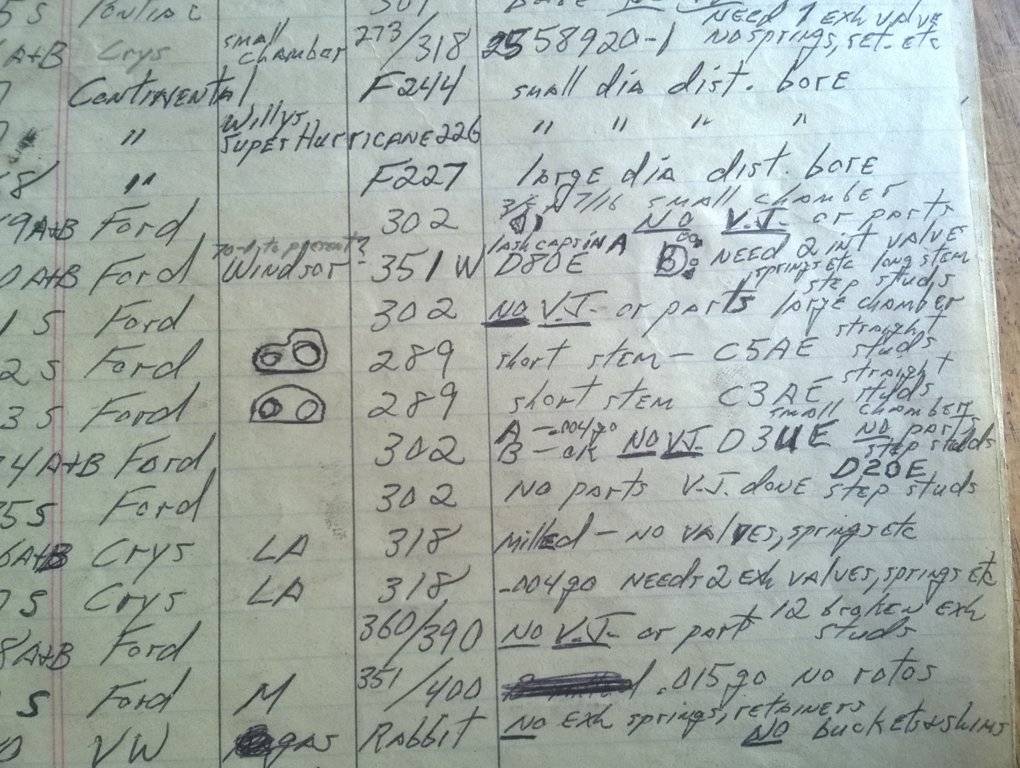 5 S Pontiac 301 NEED 1 Exh valve
A+B Crys small chamber 273/318 2558920-1 NO springs, ret. etc
Continental F244 small dia dist. bore
" Willys Super Hurricane 226 " " " "
8 " F227 large dia dist. bore
9 A+B Ford 302 7/16 small chamber NO V.J. or parts
0 A+B Ford Windsor 351 W D80E B NEED 2 int valves springs etc long stem step studs
1 S Ford 302 NO V.J. or parts large chamber straight studs
2 S Ford 289 short stem - C5AE straight studs
3 S Ford 289 short stem C3AE small chamber
4 A+B Ford 302 A - .004 go B - ok NO V.J. D3UE NO part step studs
D20E
35 S Ford 302 NO parts V.J. done step studs
6 A+B Crys LA 318 Milled - NO valves, springs etc
7 S Crys LA 318 -.004 go NEEDS 2 exh valves, springs etc
8 A+B Ford 360/390 NO V.J. or part 12 broken exh studs
S Ford M 351/400 .015 go NO rotos
0 VW gas Rabbit NO Exh springs, retainers NO buckets & shims